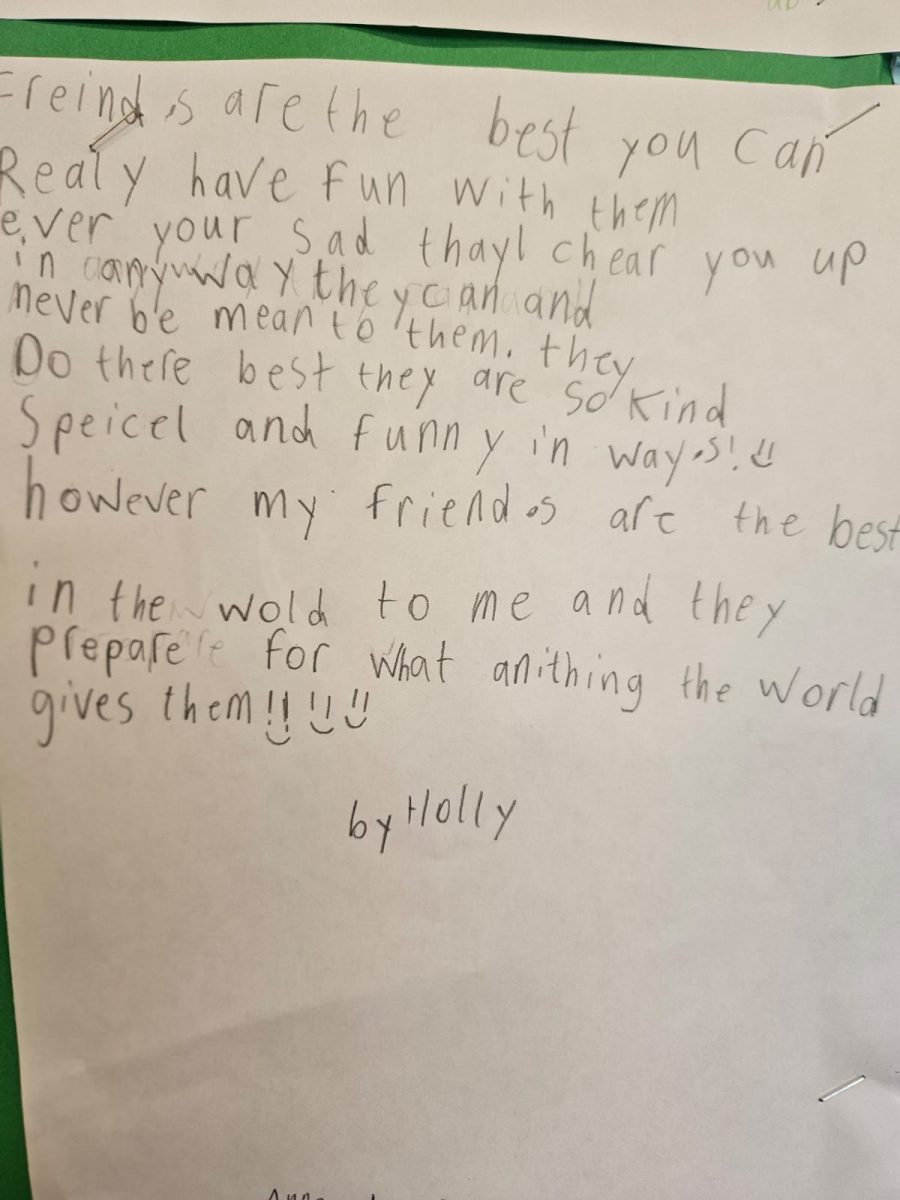 Freinds are the best you can
Realy have fun with them
ever your sad thayl chear you up
in anyway they can and
never be mean to them. they
Do there best they are so kind
Speicel and funny in ways!
however my friends are the best
in the wold to me and they
prepare for what anithing the world
gives them!! !! !!
by Holly